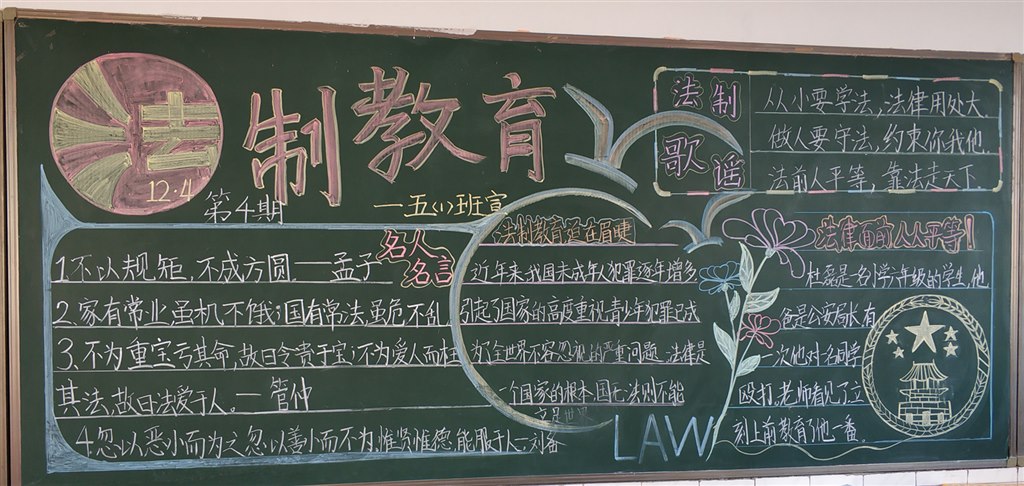 法制教育
12·4
第4期
一五(1)班宣
法制
歌谣
从小要学法,法律用处大
做人要守法,约束你我他
法前人平等,靠法走天下
名人
名言
1.不以规矩,不成方圆——孟子
2.家有常业虽饥不饿;国有常法虽危不乱
3.不为重宝亏其命,故曰令贵于宝;不为爱人而枉
其法,故曰法爱于人。—管仲
4.忽以恶小而为之忽以善小而不为惟贤惟德,能服于人—刘备
法制教育迫在眉睫
近年来我国未成年人犯罪逐年增多
引起了国家的高度重视青少年犯罪已成
为全世界不容忽视的严重问题,法律是
一个国家的根本,国无法则不能
LAW
法律面前人人平等!
杜磊是一名小学六年级的学生,他
爸是公安局长有
一次他对一名同学
殴打,老师看见了立
刻上前教育他一番。